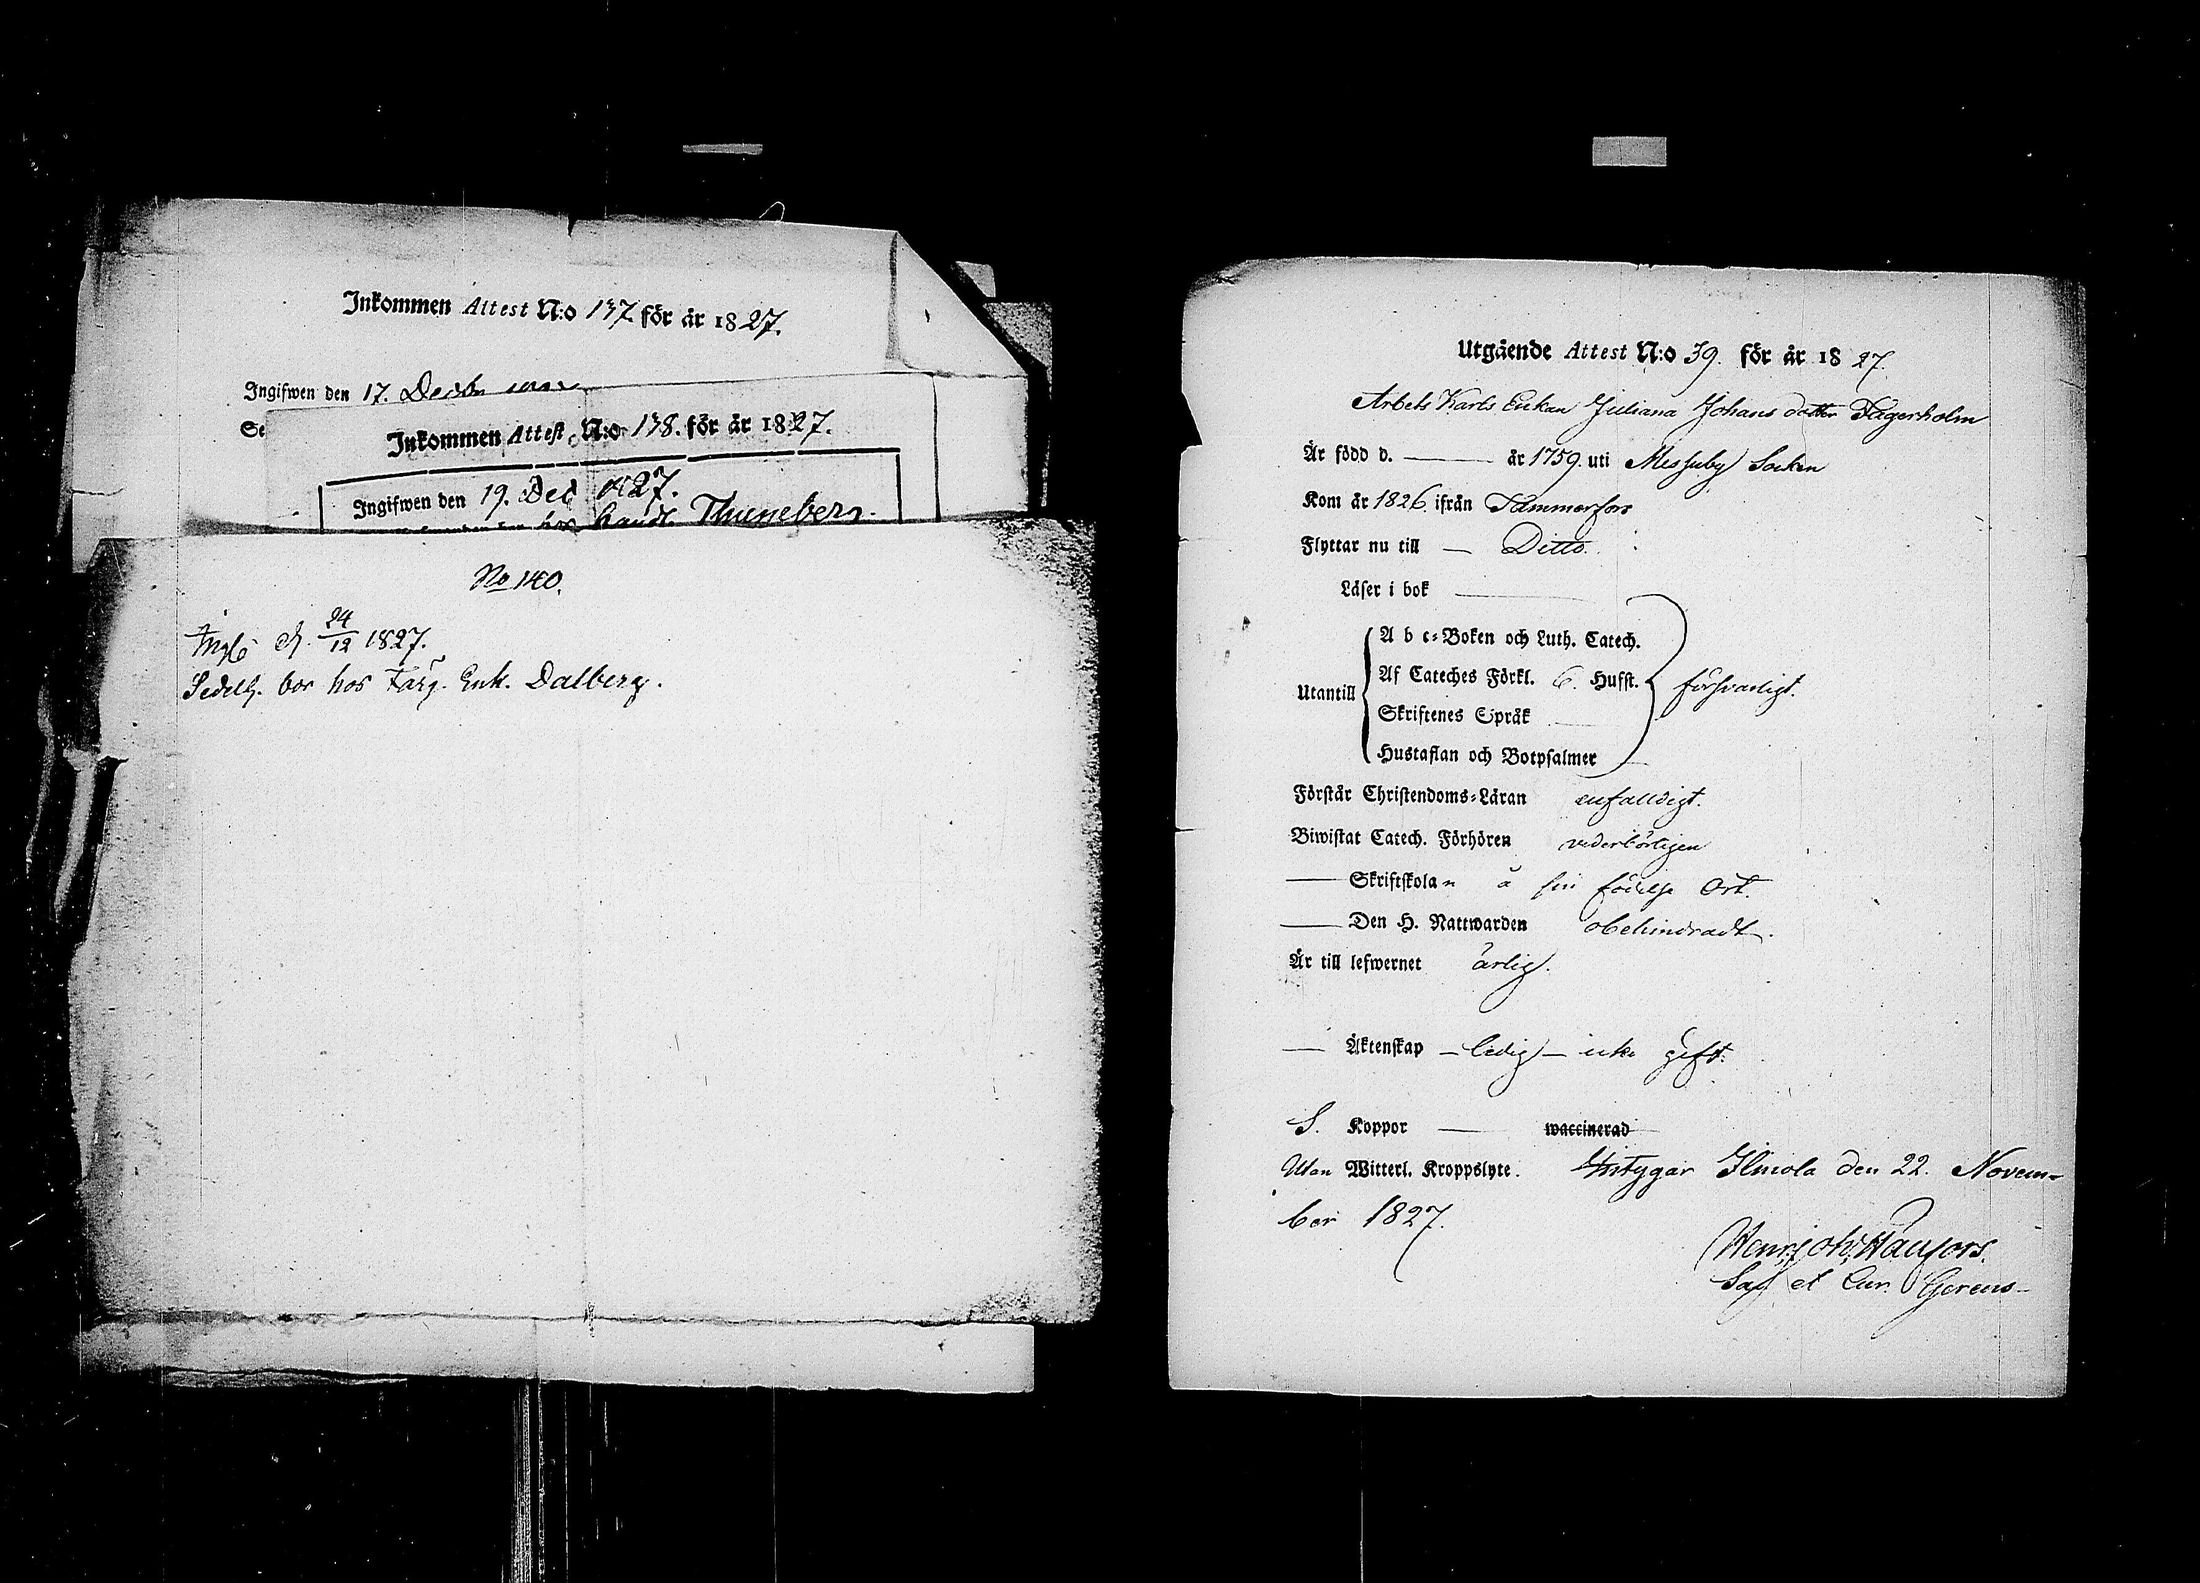 Inkommen Attest N:o 137 för år 1827.
Ingifwen den 17. Decbr
Se
Inkommen Attest N:o 138. för år 1827.
Ingifwen den 19. Dec 1827.
hos Thuneberg.
No 140.
Ingf d. 24/12 1827.
Sedelh. bor hos Färg. Enk. Dalberg.
Utgående Attest N:o 39. för år 1827.
Arbets Karls Enkan Juliana Johans dotter Fagerholm
Är född d. ——— år 1759. uti Messuby Socken
Kom år 1826 ifrån Tammerfors
Flyttar nu till — Ditto.
Läser i bok ———
Utantill
A b c-Boken och Luth. Catech.
Af Cateches Förkl. 6. Hufst. försvarligt.
Skriftenes Språk —
Hustaflan och Botpsalmer —
Förstår Christendoms-Läran enfalldigt.
Biwistat Catech. Förhören vederbörligen
— Skriftskolan å sin födelse Ort.
— Den H. Nattwarden obehindradt.
Är till lefwernet ärlig.
— Äktenskap — ledig — icke gift.
S. Koppor —— waccinerad
Utan Witterl. Kroppslyte. Intygar Ilmola den 22. Novem-
ber 1827.
Henr. Joh.
Sac. et Cur. Gerens